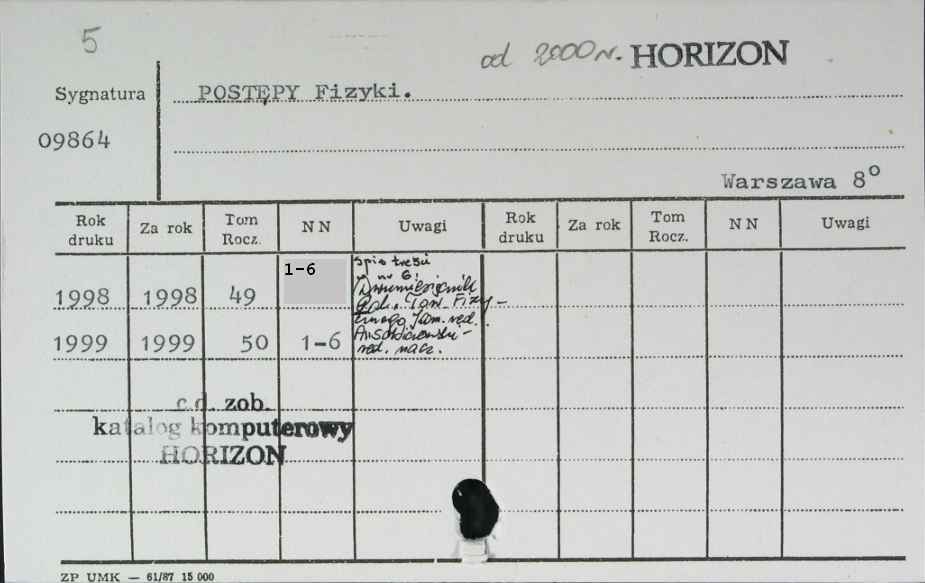 5
od 2000 r. HORIZON
Sygnatura POSTĘPY Fizyki.
09864
Warszawa 8°
Rok druku Za rok Tom Rocz. N N Uwagi Rok druku Za rok Tom Rocz. N N Uwagi
1998 1998 49 1-6
spis treści
w nr 6.
Dwumiesięcznik
Pol. Tow. Fizy-
cznego
1999 1999 50 1-6
red. nacz.
c.d. zob.
katalog komputerowy
HORIZON
ZP UMK — 61/87 15 000